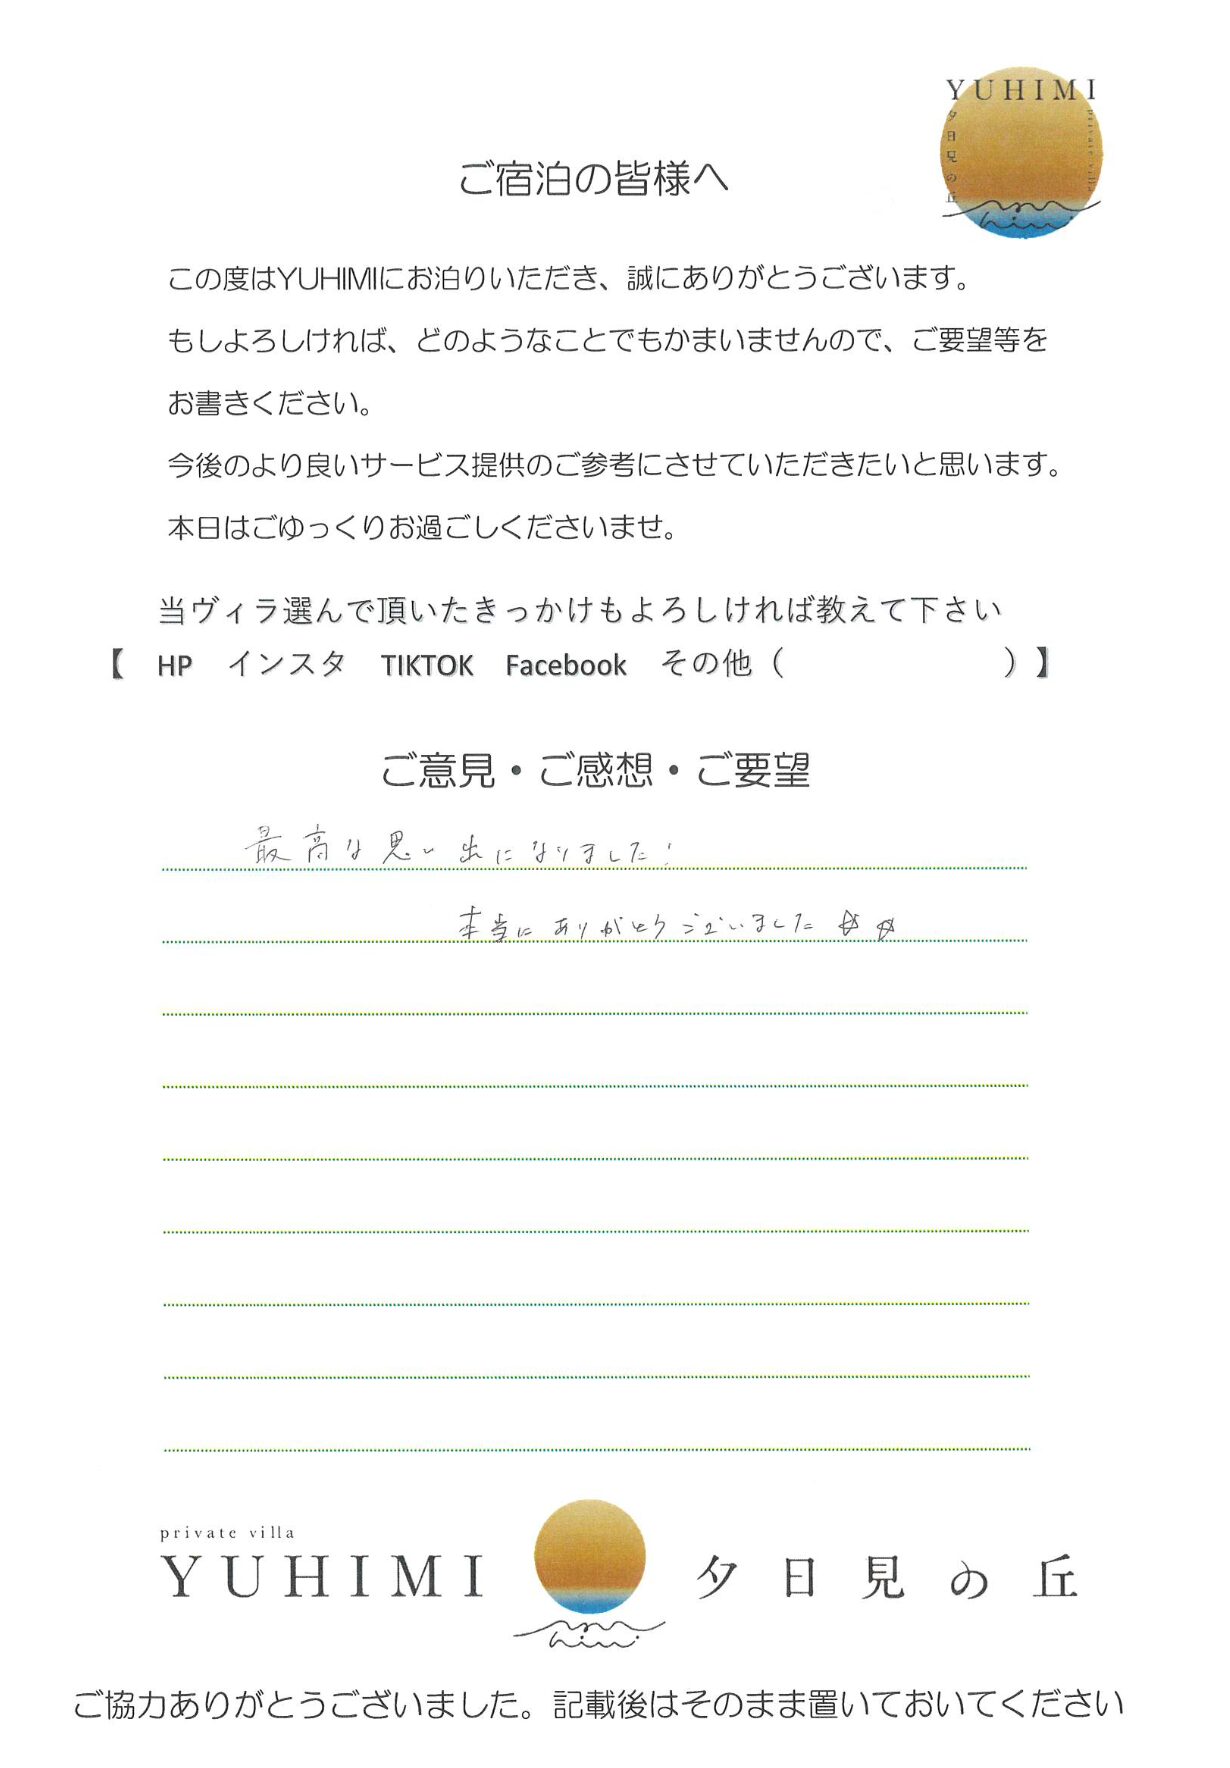 YUHIMI
夕日見の丘
private villa
ご宿泊の皆様へ
この度はYUHIMIにお泊りいただき、誠にありがとうございます。
もしよろしければ、どのようなことでもかまいませんので、ご要望等を
お書きください。
今後のより良いサービス提供のご参考にさせていただきたいと思います。
本日はごゆっくりお過ごしくださいませ。
当ヴィラ選んで頂いたきっかけもよろしければ教えて下さい
【 HP インスタ TIKTOK Facebook その他（ ）】
ご意見・ご感想・ご要望
最高な思い出になりました!
本当にありがとうございました☆☆
private villa
YUHIMI 夕日見の丘
ご協力ありがとうございました。記載後はそのまま置いておいてください